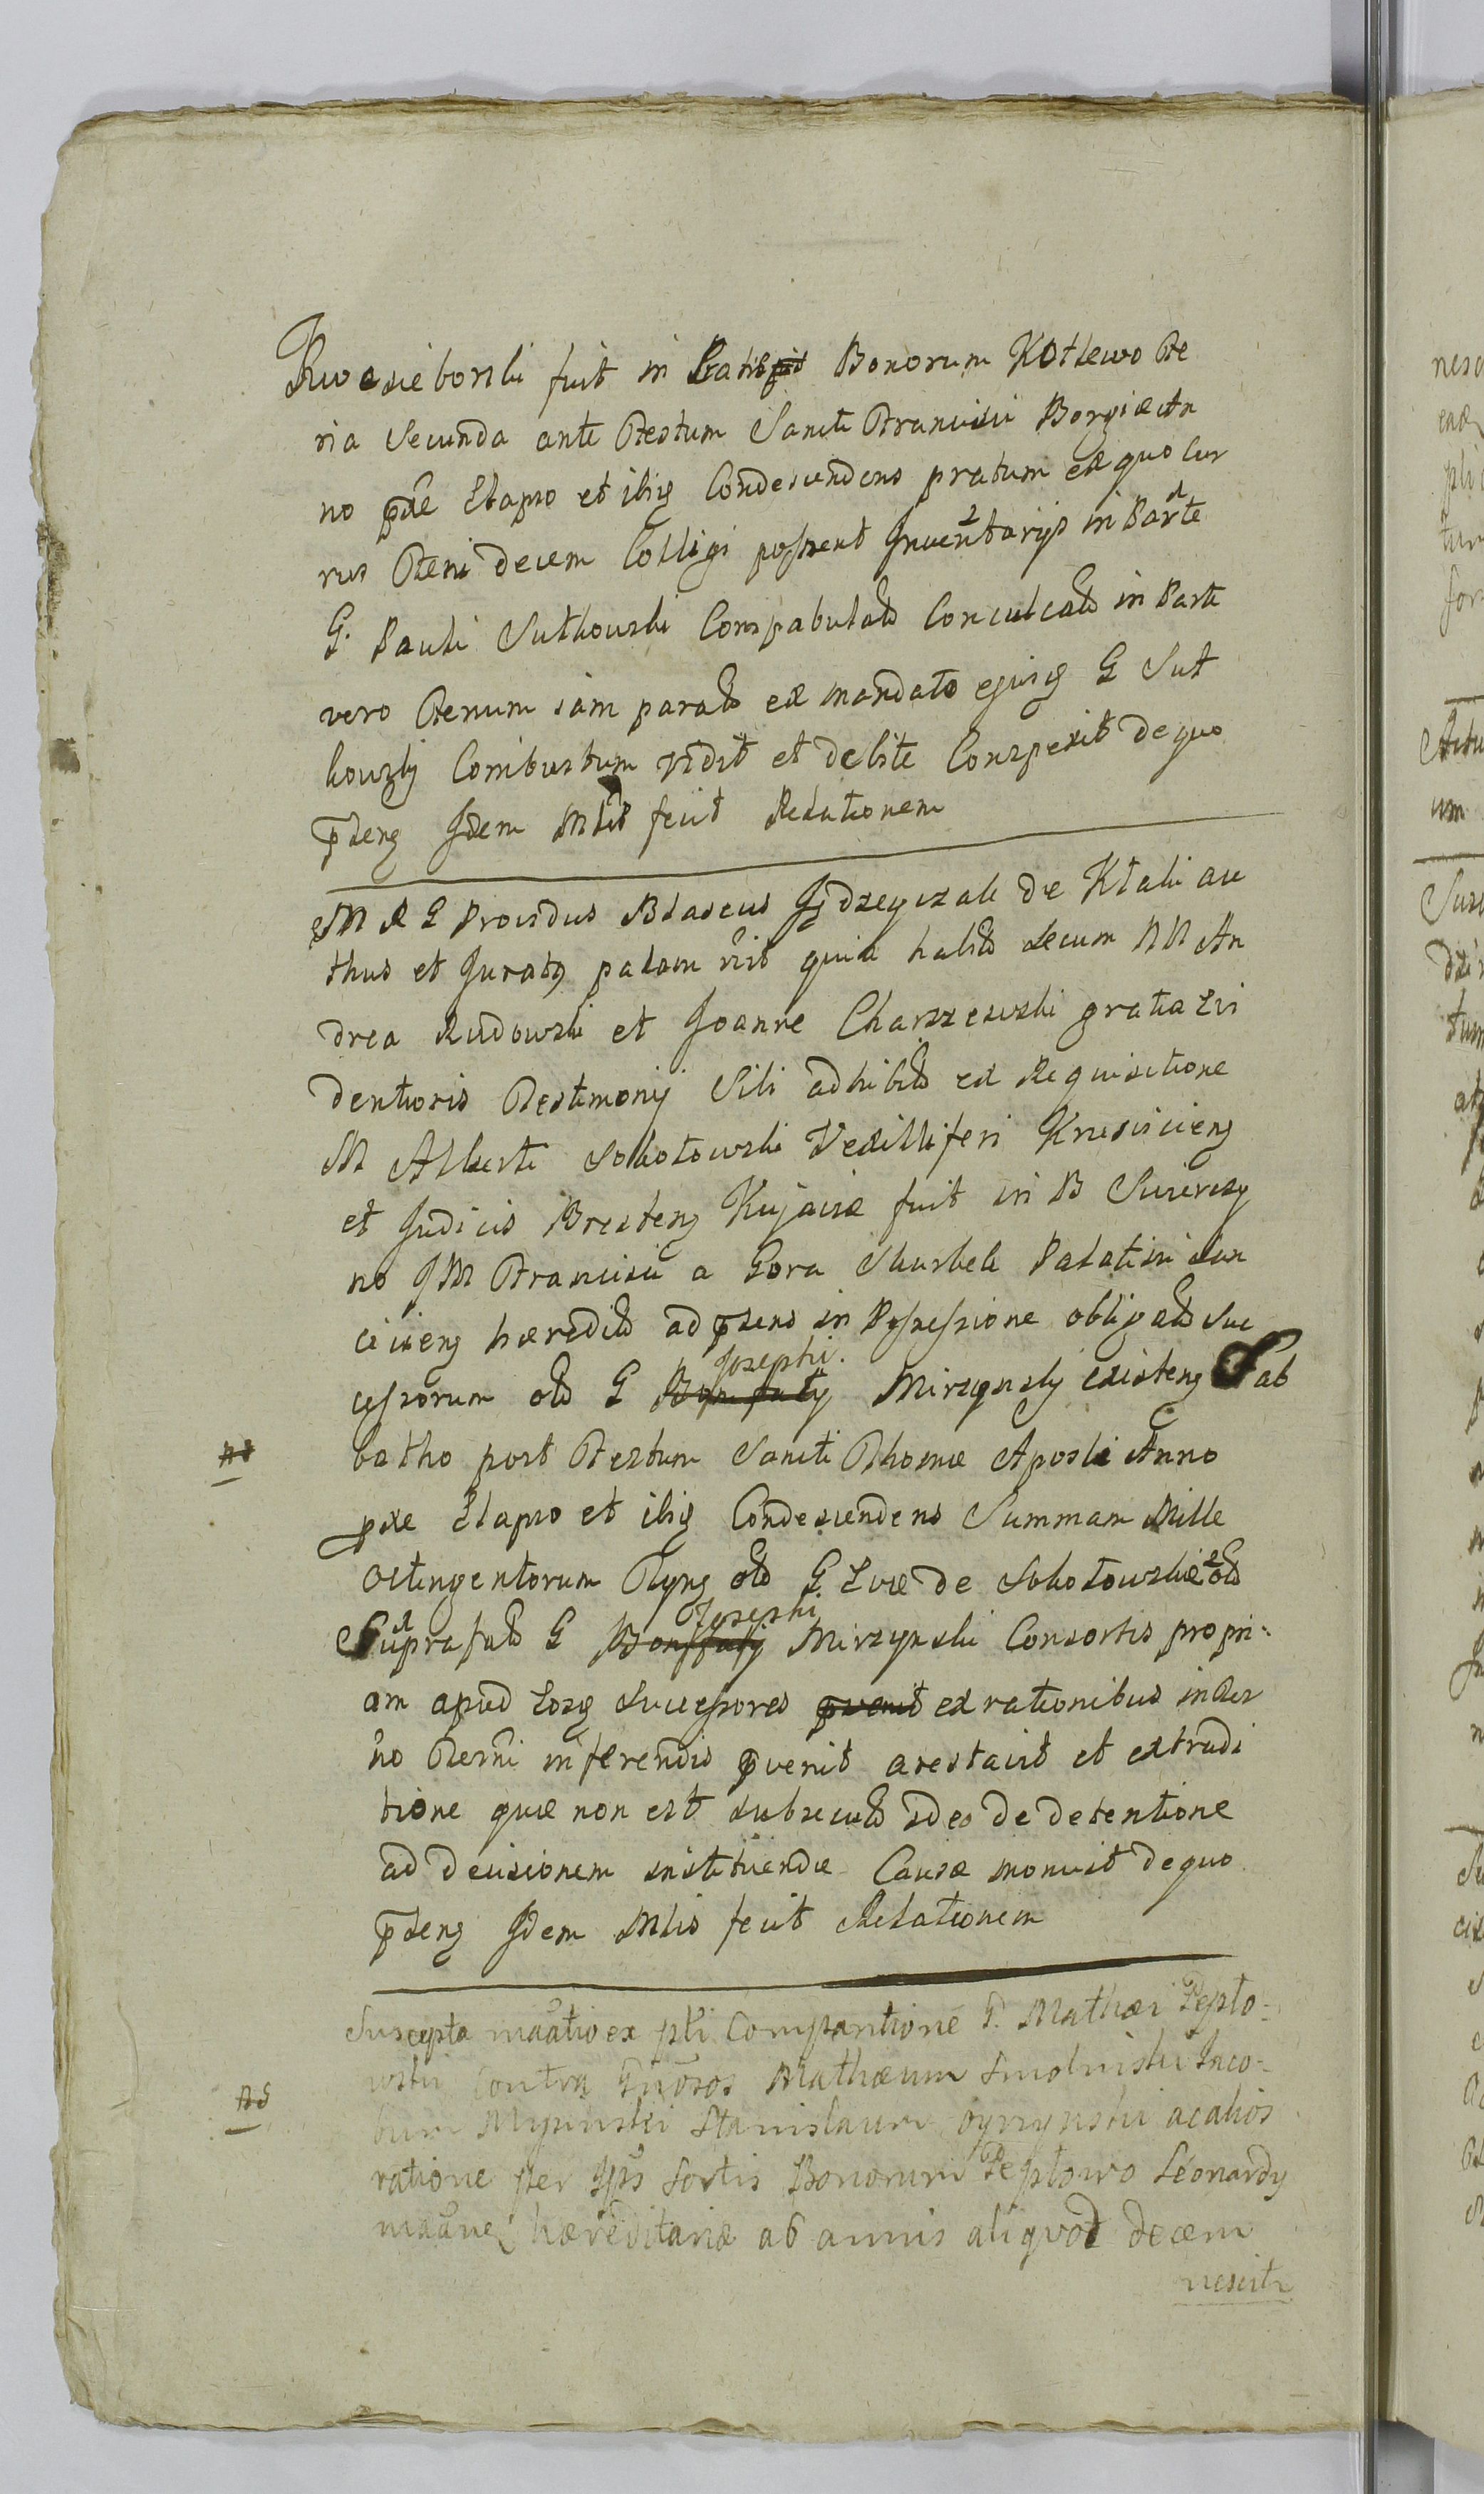 Kwasieborski fuit in Pratis Bonorum Kotlewo Fe
ria Secunda ante Festum Sancti Francisci Borgiæ An
no pde Elapso et ibiq Condescendens pratum ex quo Cur
rus Feni decem Colligi possent Inventarijs in Parte
G. Pauli Sutkowski Compabulatd Conculcatd in Parte
vero Fenum iam paratd ex mandato ejusq G Sut
kowskj Combustum vidit et debite Conspexit de quo
psens Idem Mlis fecit Relationem
M R G Providus Blasius Jędrzeyczak de Ktaki au
thus et Juratq palam rit quia habitd secum NN An
drea Rudowski et Joanne Charszewski gratia Evi
dentioris Testimonij Sibi adhibitd ex Requisitione
M Alberti Sokołowski Vexilliferi Kruswiciens
et Judicis Brestens Kujaviæ fuit in B Swierczy
no JM Francisci a Gora Skarbek Palatini Lan
ciciens hæreditd ad psens in Possessione obligatd Suc
cessorum old G Bonifacÿ Josephi Mirzynskj existens Sab
NB
batho post Festum Sancti Thomæ Apostli Anno
pde Elapso et ibiq Condescendens Summam Mille
Octingentorum Flyns old G Evæ de Sokołowskie old
Suprafatd G Bonffacÿ Josephi Mirzynski Consortis propri-
am apud Eosq Successores pvenit ex rationibus in Ter
no Terni inferendis pvenit arestavit et extradi
tione quæ non est subsecutd ideo de detentione
ad decisionem instituendæ Causæ monuit de quo
psens Idem Mlis fecit Relationem
Suscepta maatio ex pti Compartione G. Mathæi Pepło-
wski Contra Gnosos Mathæum Smolinski Jaco-
NB
bum Mysinski Stanislaum ac alios
ratione per Ipsos sortis Bonorum Pepłowo Leonardy
hæreditariæ ab annis aliquod decem
nescitr